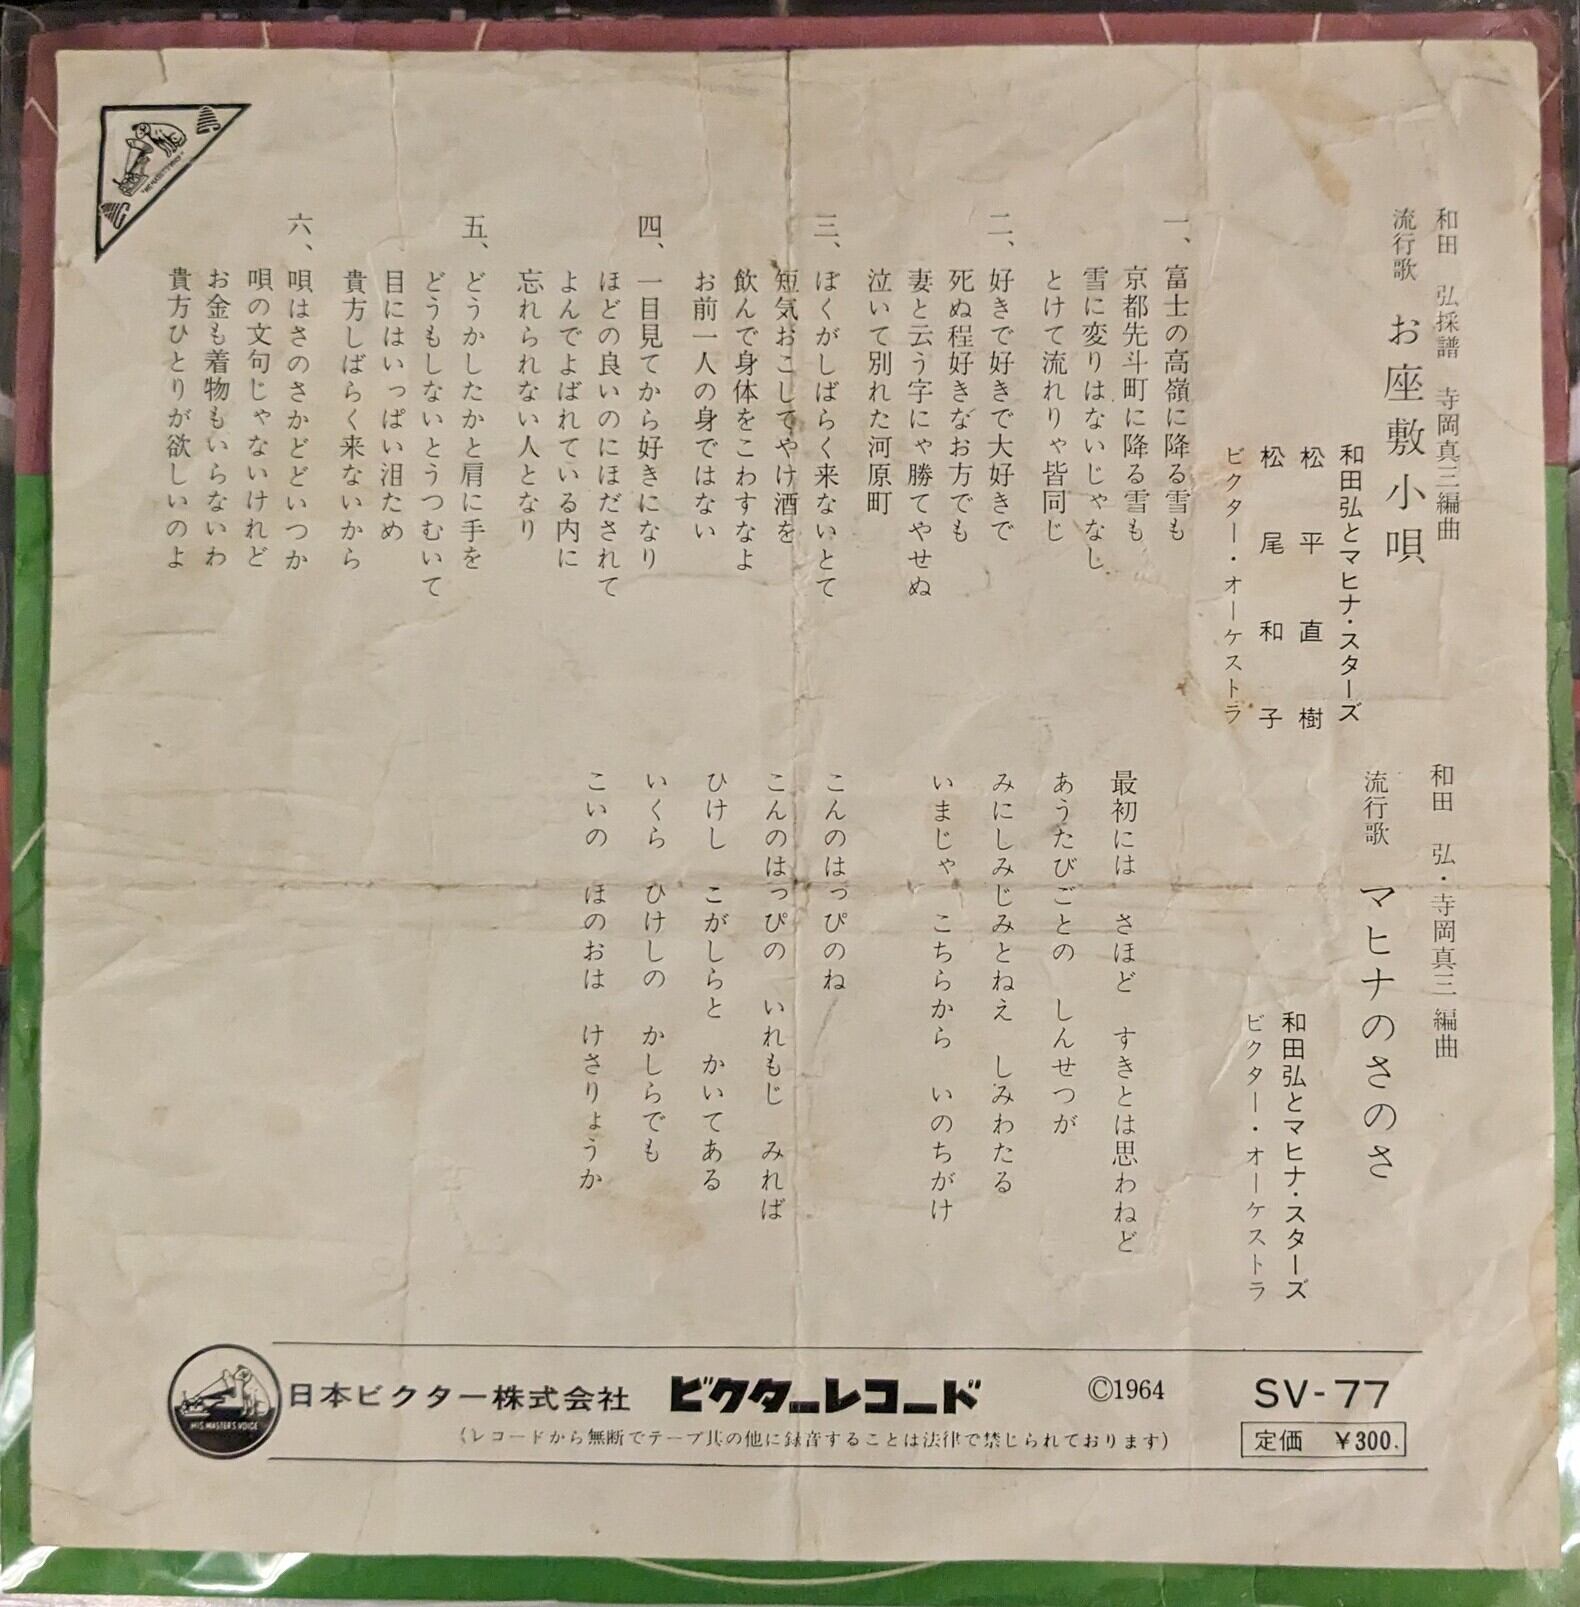 和田 弘採譜 寺岡真三編曲
流行歌 お座敷小唄
和田弘とマヒナ・スターズ
松平直樹
松尾和子
ビクター・オーケストラ
一、富士の高嶺に降る雪も
京都先斗町に降る雪も
雪に変りはないじゃなし
とけて流れりゃ皆同じ
二、好きで好きで大好きで
死ぬ程好きなお方でも
妻と云う字にゃ勝てやせぬ
泣いて別れた河原町
三、ぼくがしばらく来ないとて
短気おこしてやけ酒を
飲んで身体をこわすなよ
お前一人の身ではない
四、一目見てから好きになり
ほどの良いのにほだされて
よんでよばれている内に
忘れられない人となり
五、どうかしたかと肩に手を
どうもしないとうつむいて
目にはいっぱい泪ため
貴方しばらく来ないから
六、唄はさのさかどどいつか
唄の文句じゃないけれど
お金も着物もいらないわ
貴方ひとりが欲しいのよ
和田 弘・寺岡真三 編曲
流行歌 マヒナのさのさ
和田弘とマヒナ・スターズ
ビクター・オーケストラ
最初には さほど すきとは思わねど
あうたびごとの しんせつが
みにしみじみとねえ しみわたる
いまじゃ こちらから いのちがけ
こんのはっぴのね
こんのはっぴの いれもじ みれば
ひけし こがしらと かいてある
いくら ひけしの かしらでも
こいの ほのおは けさりょうか
HIS MASTER'S VOICE
日本ビクター株式会社 ビクターレコード ©1964 SV-77
(レコードから無断でテープ其の他に録音することは法律で禁じられております) 定価 ¥300.